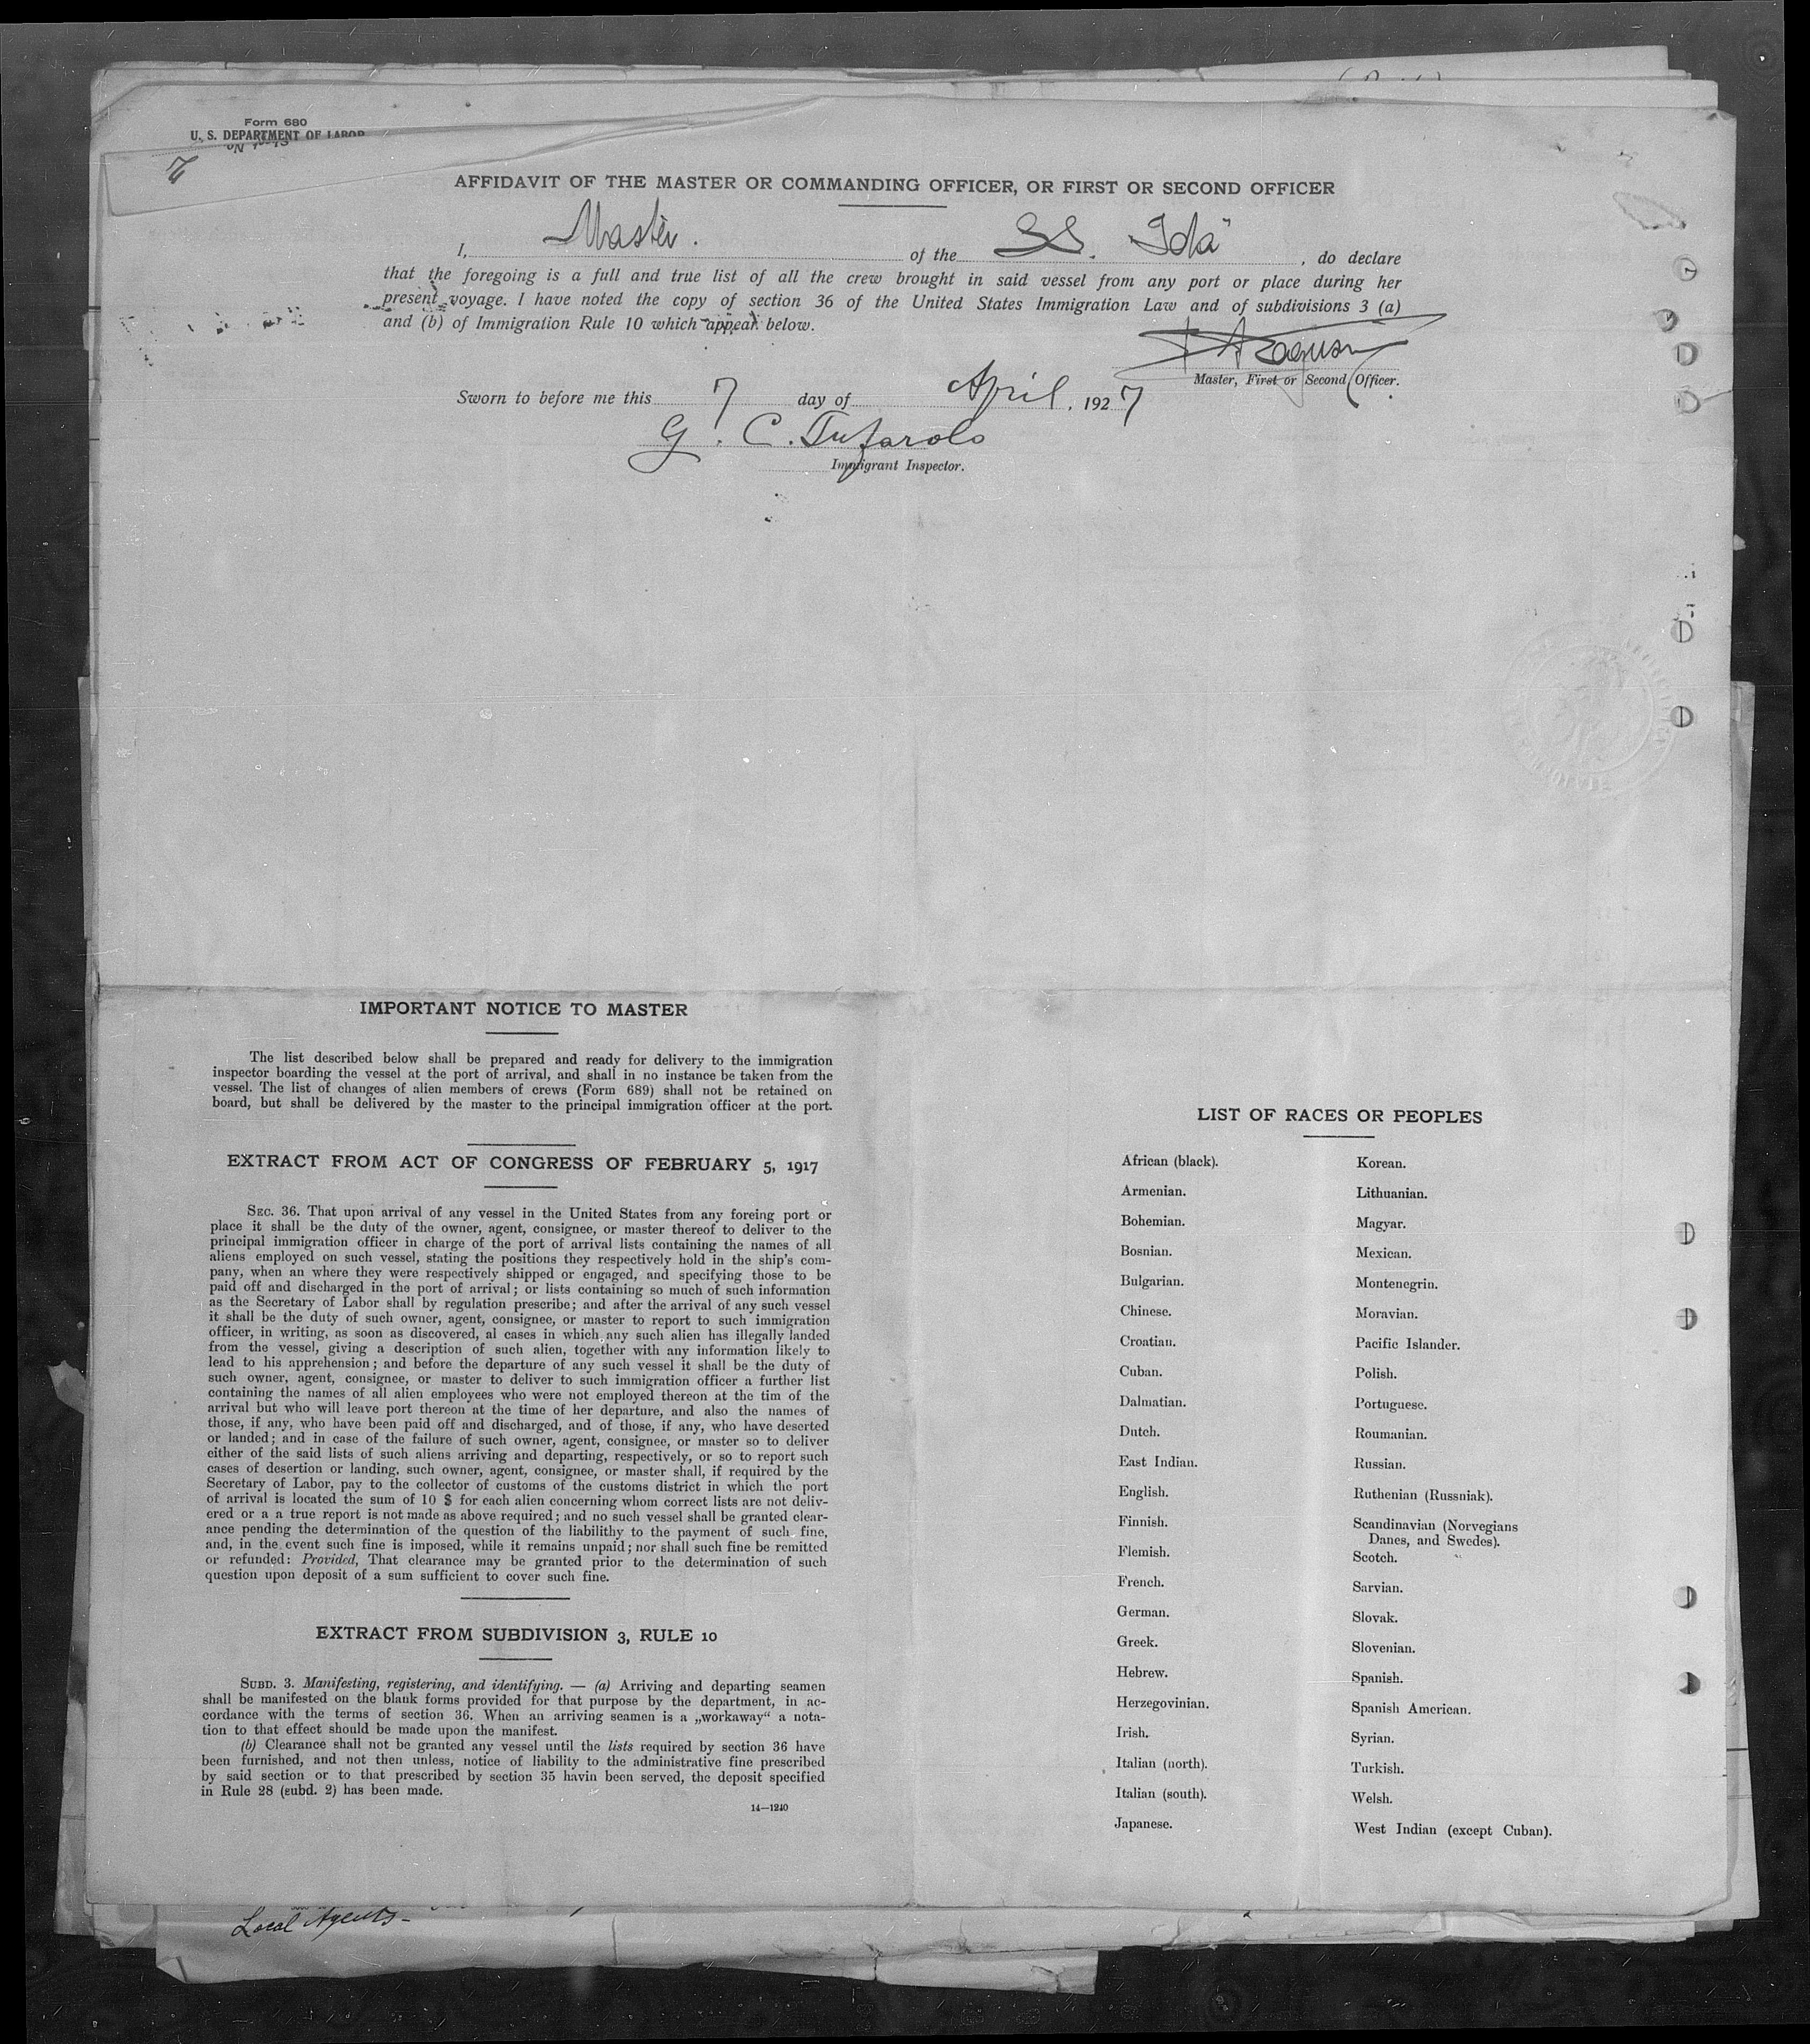 Form 680
U. S. DEPARTMENT OF LABOR
AFFIDAVIT OF THE MASTER OR COMMANDING OFFICER, OR FIRST OR SECOND OFFICER
I, Master. of the SS. "Ida", do declare
that the foregoing is a full and true list of all the crew brought in said vessel from any port or place during her
present voyage. I have noted the copy of section 36 of the United States Immigration Law and of subdivisions 3 (a)
and (b) of Immigration Rule 10 which appear below.
Master, First or Second Officer.
Sworn to before me this 7 day of April, 1927
G. C. Tufarolo
Immigrant Inspector.
IMPORTANT NOTICE TO MASTER
The list described below shall be prepared and ready for delivery to the immigration
inspector boarding the vessel at the port of arrival, and shall in no instance be taken from the
vessel. The list of changes of alien members of crews (Form 689) shall not be retained on
board, but shall be delivered by the master to the principal immigration officer at the port.
EXTRACT FROM ACT OF CONGRESS OF FEBRUARY 5, 1917
SEC. 36. That upon arrival of any vessel in the United States from any foreing port or
place it shall be the duty of the owner, agent, consignee, or master thereof to deliver to the
principal immigration officer in charge of the port of arrival lists containing the names of all
aliens employed on such vessel, stating the positions they respectively hold in the ship's com-
pany, when an where they were respectively shipped or engaged, and specifying those to be
paid off and discharged in the port of arrival; or lists containing so much of such information
as the Secretary of Labor shall by regulation prescribe; and after the arrival of any such vessel
it shall be the duty of such owner, agent, consignee, or master to report to such immigration
officer, in writing, as soon as discovered, al cases in which any such alien has illegally landed
from the vessel, giving a description of such alien, together with any information likely to
lead to his apprehension; and before the departure of any such vessel it shall be the duty of
such owner, agent, consignee, or master to deliver to such immigration officer a further list
containing the names of all alien employees who were not employed thereon at the tim of the
arrival but who will leave port thereon at the time of her departure, and also the names of
those, if any, who have been paid off and discharged, and of those, if any, who have deserted
or landed; and in case of the failure of such owner, agent, consignee, or master so to deliver
either of the said lists of such aliens arriving and departing, respectively, or so to report such
cases of desertion or landing, such owner, agent, consignee, or master shall, if required by the
Secretary of Labor, pay to the collector of customs of the customs district in which the port
of arrival is located the sum of 10 $ for each alien concerning whom correct lists are not deliv-
ered or a a true report is not made as above required; and no such vessel shall be granted clear-
ance pending the determination of the question of the liabilithy to the payment of such fine,
and, in the event such fine is imposed, while it remains unpaid; nor shall such fine be remitted
or refunded: Provided, That clearance may be granted prior to the determination of such
question upon deposit of a sum sufficient to cover such fine.
EXTRACT FROM SUBDIVISION 3, RULE 10
SUBD. 3. Manifesting, registering, and identifying. — (a) Arriving and departing seamen
shall be manifested on the blank forms provided for that purpose by the department, in ac-
cordance with the terms of section 36. When an arriving seamen is a „workaway“ a nota-
tion to that effect should be made upon the manifest.
(b) Clearance shall not be granted any vessel until the lists required by section 36 have
been furnished, and not then unless, notice of liability to the administrative fine prescribed
by said section or to that prescribed by section 35 havin been served, the deposit specified
in Rule 28 (subd. 2) has been made.
14—1240
LIST OF RACES OR PEOPLES
African (black).
Armenian.
Bohemian.
Bosnian.
Bulgarian.
Chinese.
Croatian.
Cuban.
Dalmatian.
Dutch.
East Indian.
English.
Finnish.
Flemish.
French.
German.
Greek.
Hebrew.
Herzegovinian.
Irish.
Italian (north).
Italian (south).
Japanese.
Korean.
Lithuanian.
Magyar.
Mexican.
Montenegrin.
Moravian.
Pacific Islander.
Polish.
Portuguese.
Roumanian.
Russian.
Ruthenian (Russniak).
Scandinavian (Norvegians
Danes, and Swedes).
Scotch.
Sarvian.
Slovak.
Slovenian.
Spanish.
Spanish American.
Syrian.
Turkish.
Welsh.
West Indian (except Cuban).
Local Agents-